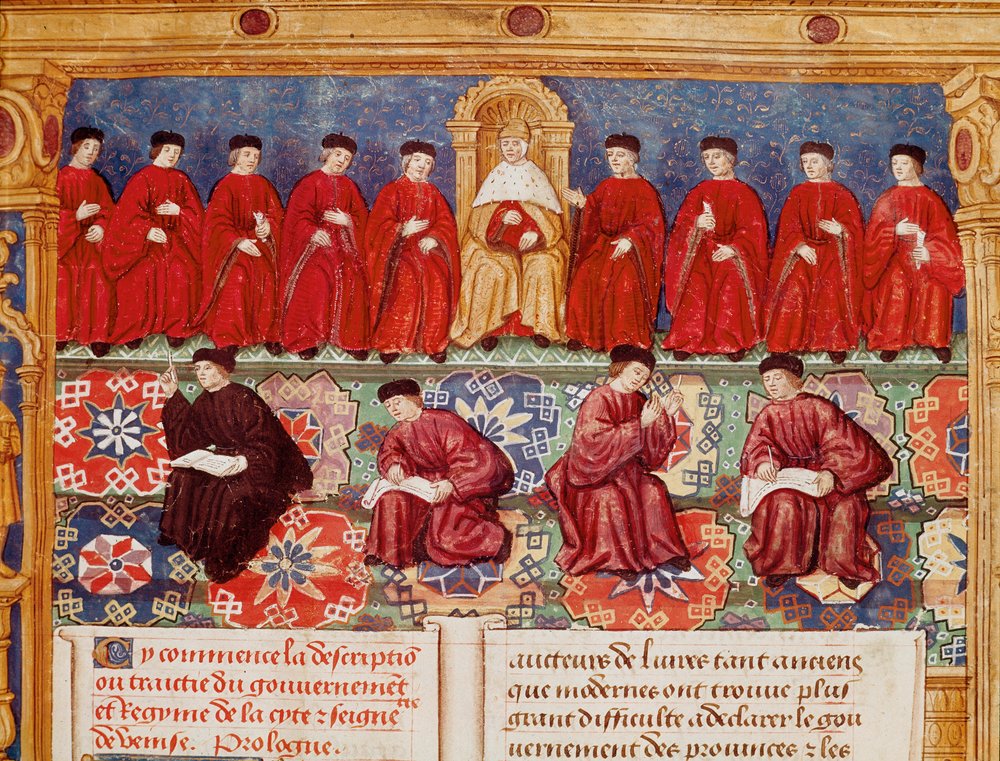 Cy commence la descriptiō
ou traictie du gouvernemēt
et Regyme de la cyte ⁊ seigneͬᶦᵉ
de venise. Prologue.
aucteurs de livres tant anciens
que modernes ont trouve plus
grant difficulte a declarer le gou
vernement des provinces ⁊ les